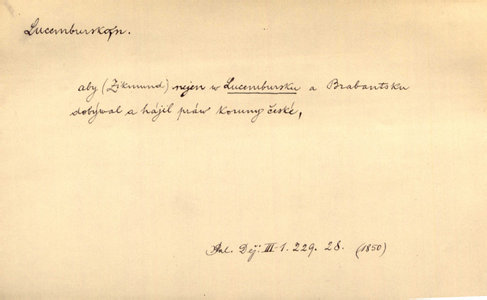 Lucembursko, n.
aby (Zikmund) nejen w Lucembursku a Brabantsku
dobýwal a hájil práw koruny české,
Pal. Děj. III-1. 229. 28. (1850)